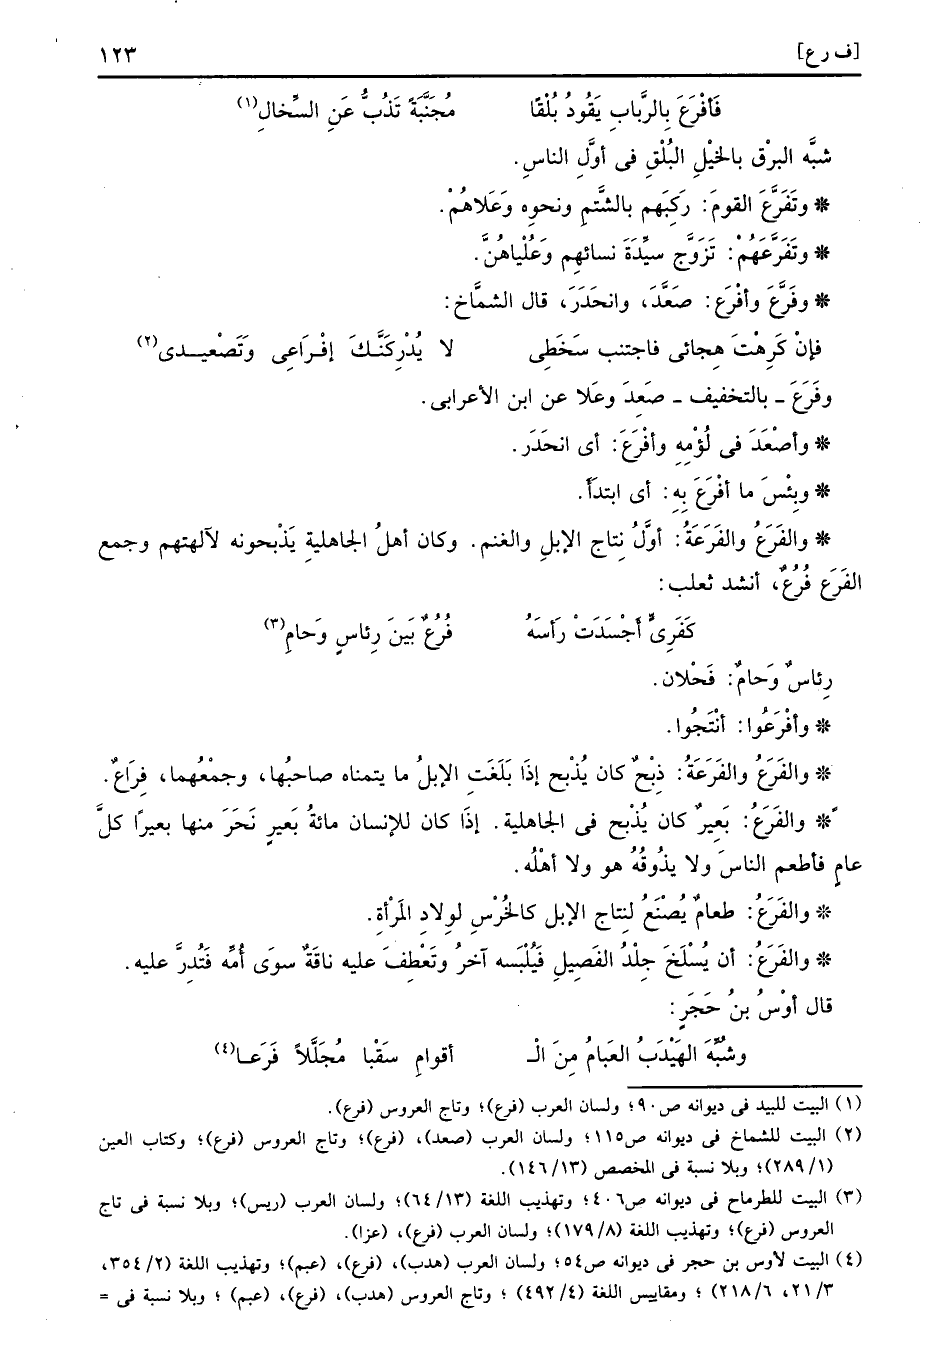 [ف ر ع] ١٢٣
فَأفْرَعَ بِالرَّبابِ يَقُودُ بُلْقًا مُجَنَّبَةً تَذُبُّ عَنِ السِّخالِ(١)
شبَّه البرْق بالخيْلِ البُلْقِ فى أوَّلِ الناسِ.
* وتَفَرَّعَ القومَ: رَكِبَهم بالشَّتمِ ونحوِه وعَلَاهُمْ.
* وتَفَرَّعَهُمْ: تَزَوَّج سيِّدَةَ نسائهِم وعُلْياهُنَّ.
* وفَرَّعَ وأفْرَع: صَعَّدَ، وانحَدَرَ، قال الشمَّاخ:
فإنْ كَرِهْتَ هِجائى فاجتنب سَخَطِى لا يُدْرِكَنَّـكَ إفْـرَاعِى وتَصْعِيـدى(٢)
وفَرَعَ ـ بالتخفيف ـ صَعِدَ وعَلا عن ابن الأعرابى.
* وأصْعَدَ فى لُؤْمِه وأفْرَعَ: أى انحَدَر.
* وبِئْسَ ما أفْرَعَ بِهِ: أى ابتدَأَ.
* والفَرَعُ والفَرَعَةُ: أوَّلُ نِتاج الإبلِ والغنم. وكان أهلُ الجاهليةِ يَذْبحونه لآلهتهم وجمع
الفَرَعِ فُرُعٌ، أنشد ثعلب:
كَفَرِىٍّ أَجْسَدَتْ رَأسَهُ فُرُعٌ بَينَ رِئاسٍ وَحامِ(٣)
رِئاسٌ وَحامٌ: فَحْلان.
* وأفْرَعُوا: أنْتَجُوا.
* والفَرَعُ والفَرَعَةُ: ذِبْحٌ كان يُذْبح إذَا بَلَغَتِ الإبلُ ما يتمناه صاحبُها، وجمْعُهما، فِرَاعٌ.
* والفَرَعُ: بَعِيرٌ كان يُذْبح فى الجاهلية. إذَا كان للإنسان مائةُ بَعيرٍ نَحَرَ منها بعيرًا كلَّ
عامٍ فأطعم الناسَ ولا يذُوقُهُ هو ولا أهْلُه.
* والفَرَعُ: طعامٌ يُصْنَعُ لنِتاج الإبل كالخُرْسِ لوِلادِ المَرْأةِ.
* والفَرَعُ: أن يُسْلَخَ جِلْدُ الفَصِيلِ فَيُلْبَسه آخرُ وتَعْطِفَ عليه ناقَةٌ سوَى أُمِّه فَتُدرَّ عليه.
قال أوْسُ بنُ حَجَرٍ:
وشُبِّهَ الهَيْدَبُ العَبامُ مِنَ الْـ أقوامِ سَقْبا مُجَلَّلاً فَرَعـا(٤)
(١) البيت للبيد فى ديوانه ص٩٠؛ ولسان العرب (فرع)؛ وتاج العروس (فرع).
(٢) البيت للشماخ فى ديوانه ص١١٥؛ ولسان العرب (صعد)، (فرع)؛ وتاج العروس (فرع)؛ وكتاب العين
(٢٨٩/١)؛ وبلا نسبة فى المخصص (١٤٦/١٣).
(٣) البيت للطرماح فى ديوانه ص٤٠٦؛ وتهذيب اللغة (٦٤/١٣)؛ ولسان العرب (ريس)؛ وبلا نسبة فى تاج
العروس (فرع)؛ وتهذيب اللغة (١٧٩/٨)؛ ولسان العرب (فرع)، (عزا).
(٤) البيت لأوس بن حجر فى ديوانه ص٥٤؛ ولسان العرب (هدب)، (فرع)، (عبم)؛ وتهذيب اللغة (٣٥٤/٢،
٢١/٣، ٢١٨/٦) ؛ ومقاييس اللغة (٤٩٢/٤) ؛ وتاج العروس (هدب)، (فرع)، (عبم) ؛ وبلا نسبة فى =